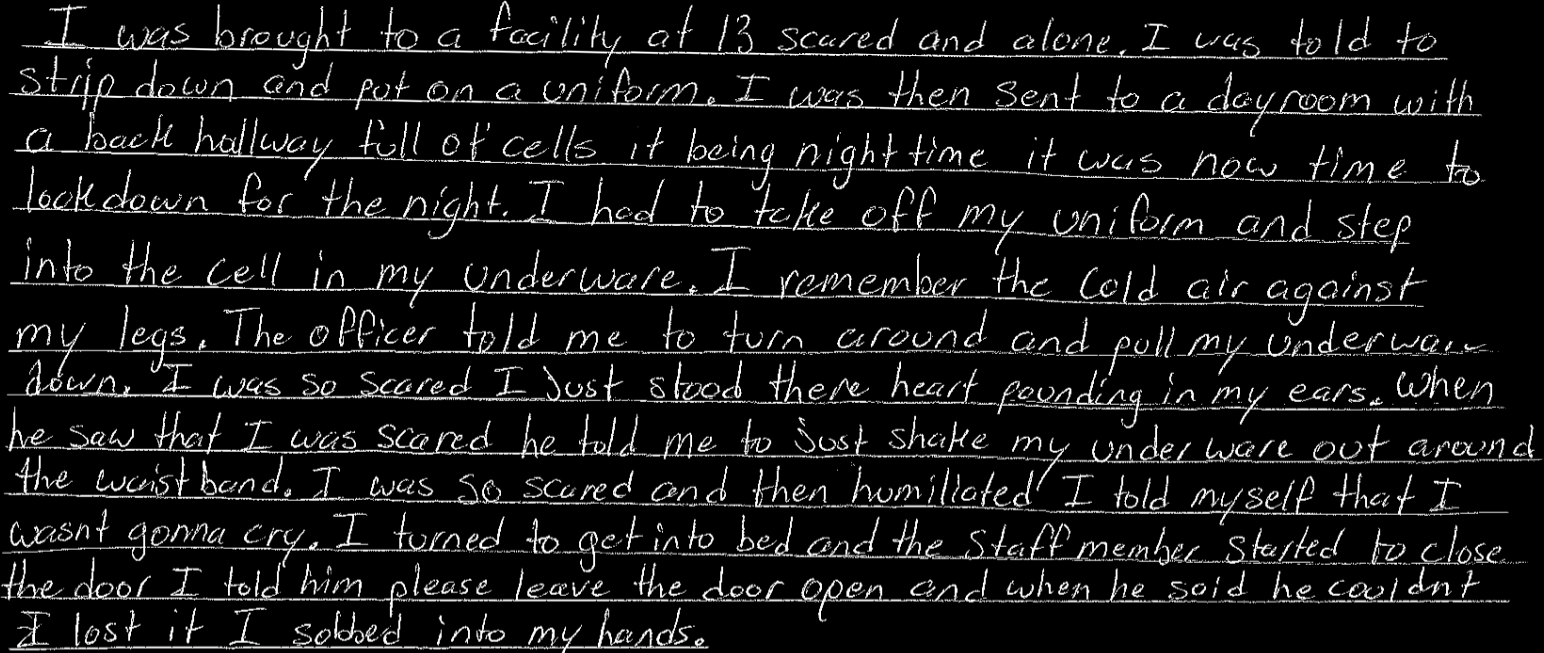 I was brought to a facility at 13 scared and alone. I was told to
strip down and put on a uniform. I was then sent to a dayroom with
a back hallway full of cells it being night time it was now time to
lockdown for the night. I had to take off my uniform and step
into the cell in my underware. I remember the cold air against
my legs. The officer told me to turn around and pull my underware
down. I was so scared I just stood there heart pounding in my ears. When
he saw that I was scared he told me to just shake my under ware out around
the waistband. I was so scared and then humiliated I told myself that I
wasnt gonna cry. I turned to get into bed and the staff member started to close
the door I told him please leave the door open and when he said he couldnt
I lost it I sobbed into my hands.